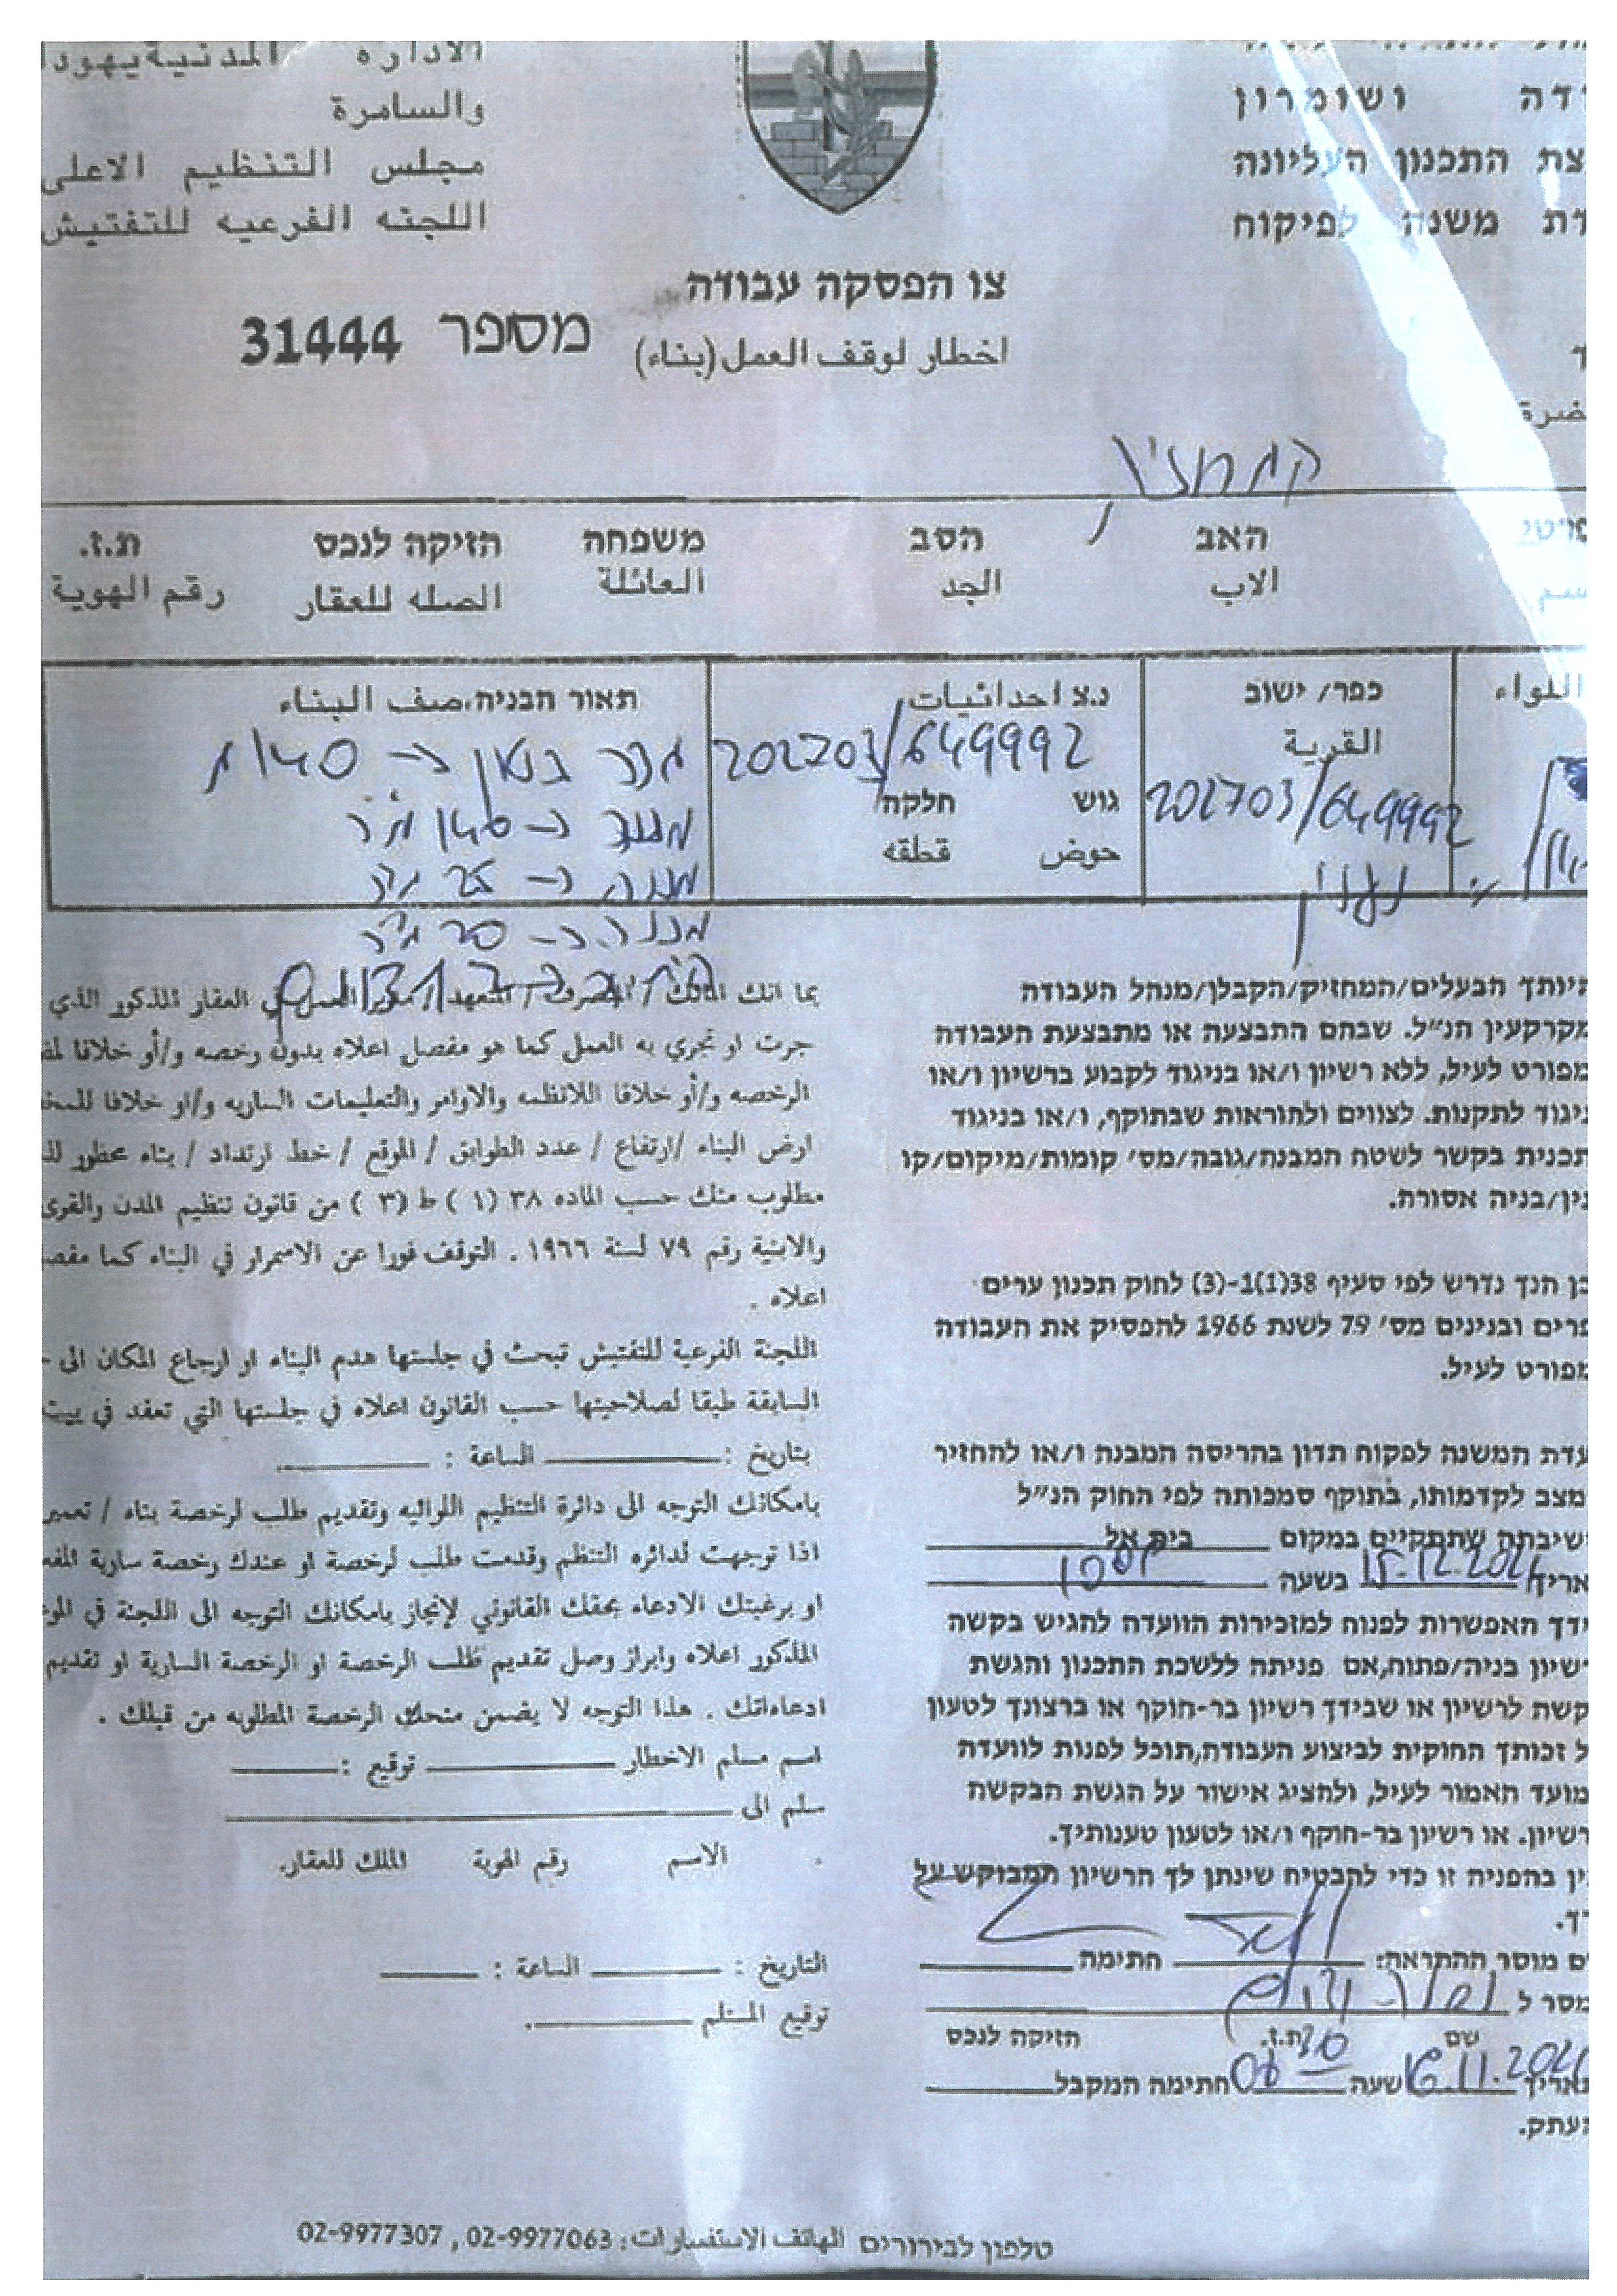 الادارة المدنية يهودا
والسامرة
مجلس التنظيم الاعلى
اللجنه الفرعيه للتفتيش
ושומרון
התכנון העליונה
משנה לפיקוח
צו הפסקה עבודה
اخطار لوقف العمل (بناء)
מספר 31444
האב הסב משפחה הזיקה לנכס ת.ז.
الاب الجد العائلة الصله للعقار رقم الهوية
اللواء
כפר/ ישוב
القرية
202703/649992
נעלין
נ.צ احداثيات
202703/649992
גוש חלקה
حوض قطقه
תאור הבניה، صف البناء
כ- 140 מ
מבנה כ- 140 מ"ר
מבנה כ- 25 מ"ר
מבנה כ- 20 מ"ר
היותך הבעלים/המחזיק/הקבלן/מנהל העבודה
מקרקעין הנ"ל. שבהם התבצעה או מתבצעת העבודה
מפורט לעיל, ללא רשיון ו/או בניגוד לקבוע ברשיון ו/או
ניגוד לתקנות. לצווים ולהוראות שבתוקף, ו/או בניגוד
תכנית בקשר לשטח המבנה/גובה/מס' קומות/מיקום/קו
/בניה אסורה.
הנך נדרש לפי סעיף 38(1)1-(3) לחוק תכנון ערים
ובנינים מס' 79 לשנת 1966 להפסיק את העבודה
מפורט לעיל.
המשנה לפקוח תדון בהריסה המבנה ו/או להחזיר
מצב לקדמותו, בתוקף סמכותה לפי החוק הנ"ל
שתתקיים במקום בית אל
15.12.2024 בשעה 10
האפשרות לפנות למזכירות הוועדה להגיש בקשה
רשיון בניה/פתוח,אם פניתה ללשכת התכנון והגשת
לרשיון או שבידך רשיון בר-תוקף או ברצונך לטעון
זכותך החוקית לביצוע העבודה,תוכל לפנות לוועדה
מועד האמור לעיל, ולהציג אישור על הגשת הבקשה
רשיון. או רשיון בר-תוקף ו/או לטעון טענותיך.
בהפניה זו כדי להבטיח שינתן לך הרשיון המבוקש על
מוסר ההתראה: חתימה
מסר ל
שם ת.ז. חזיקה לנכס
תאריך 16.11.2024 שעה חתימה המקבל
העתק.
بما انك المالك / المتصرف / المتعهد / العمل في العقار المذكور الذي
جرت او تجري به العمل كما هو مفصل اعلاه بدون رخصه و/أو خلافا
الرخصه و/أو خلافا اللانظمه والاوامر والتعليمات الساريه و/او خلافا
ارض البناء /ارتفاع / عدد الطوابق / الموقع / خط ارتداد / بناء محظور
مطلوب منك حسب الماده ٣٨ (١) ط (٣) من قانون تنظيم المدن والقرى
والابنية رقم ٧٩ لسنة ١٩٦٦ . التوقف فورا عن الاستمرار في البناء كما
اعلاه .
اللجنة الفرعية للتفتيش تبحث في جلستها هدم البناء او ارجاع المكان الى
السابقة طبقا لصلاحيتها حسب القانون اعلاه في جلستها التي تعقد في بيت
بتاريخ : الساعة :
بامكانك التوجه الى دائرة التنظيم اللوائيه وتقديم طلب لرخصة بناء / تعمير
اذا توجهت لدائره التنظم وقدمت طلب لرخصة او عندك رخصة سارية
او برغبتك الادعاء بحقك القانوني لإنجاز بامكانك التوجه الى اللجنة في
المذكور اعلاه وابراز وصل تقديم طلب الرخصة او الرخصة السارية او تقديم
ادعاءاتك . هذا التوجه لا يضمن منحك الرخصة المطلوبه من قبلك .
اسم مسلم الاخطار توقيع :
سلم الى
الاسم رقم الهوية المالك للعقار.
التاريخ : الساعة :
توقيع المستلم
טלפון לבירורים الهاتف الاستفسارات : 02-9977063 , 02-9977307